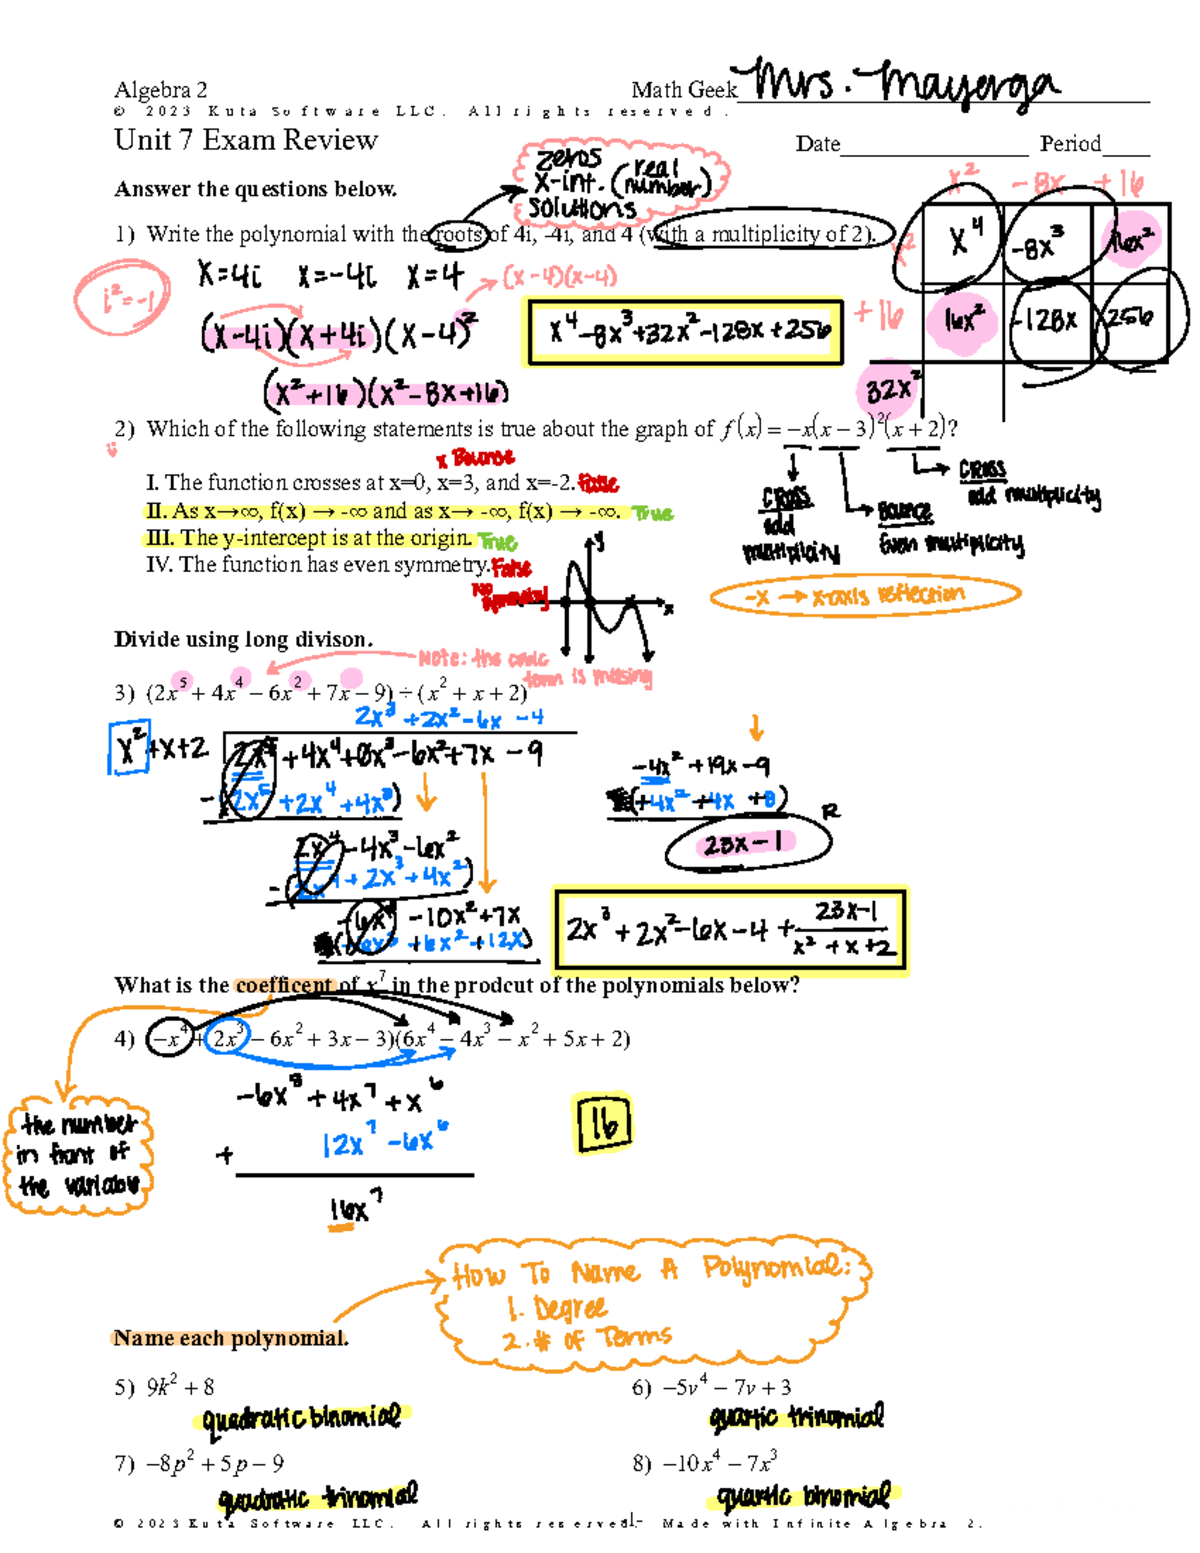 Algebra 2
Math Geek Mrs. Mayerga
© 2023 Kuta Software LLC. All rights reserved.
Unit 7 Exam Review
Date Period
zeros
x-int. (real number)
solutions
Answer the questions below.
x² - 8x + 16
1) Write the polynomial with the roots of 4i, -4i, and 4 (with a multiplicity of 2).
x² x⁴ -8x³ 16x²
i² = -1
x=4i x=-4i x=4 → (x-4)(x-4)
+16 16x² -128x 256
(x-4i)(x+4i)(x-4)²
x⁴-8x³+32x²-128x+256
(x²+16)(x²-8x+16)
32x²
2) Which of the following statements is true about the graph of f(x) = −x(x − 3)²(x + 2)?
x Bounce
I. The function crosses at x=0, x=3, and x=-2. False
II. As x→∞, f(x) → -∞ and as x→ -∞, f(x) → -∞. True
III. The y-intercept is at the origin. True
IV. The function has even symmetry. False
No symmetry
y
x
Cross
odd
multiplicity
Bounce
Even multiplicity
Cross
odd multiplicity
-x → x-axis reflection
Divide using long divison.
Note: the cubic
term is missing
3) (2x⁵ + 4x⁴ − 6x² + 7x − 9) ÷ (x² + x + 2)
2x³ +2x²-6x -4
x²+x+2 2x⁵ +4x⁴+0x³-6x²+7x -9
-(2x⁵ +2x⁴ +4x³)
2x⁴ -4x³-6x²
-(2x⁴ + 2x³+4x²)
-6x³ -10x²+7x
(-6x³ +6x²+12x)
-4x²+19x-9
(+4x²+4x +8)
23x-1 R
2x³+2x²-6x-4+ 23x-1
x²+x+2
What is the coefficent of x⁷ in the prodcut of the polynomials below?
4) (−x⁴ + 2x³ − 6x² + 3x − 3)(6x⁴ − 4x³ − x² + 5x + 2)
the number
in front of
the variable
-6x⁸ + 4x⁷ + x⁶
+ 12x⁷ -6x⁶
16x⁷
16
How To Name A Polynomial:
1. Degree
2. # of Terms
Name each polynomial.
5) 9k² + 8
quadratic binomial
6) −5v⁴ − 7v + 3
quartic trinomial
7) −8p² + 5p − 9
quadratic trinomial
8) −10x⁴ − 7x³
quartic binomial
© 2023 Kuta Software LLC. All rights reserved. -1- Made with Infinite Algebra 2.